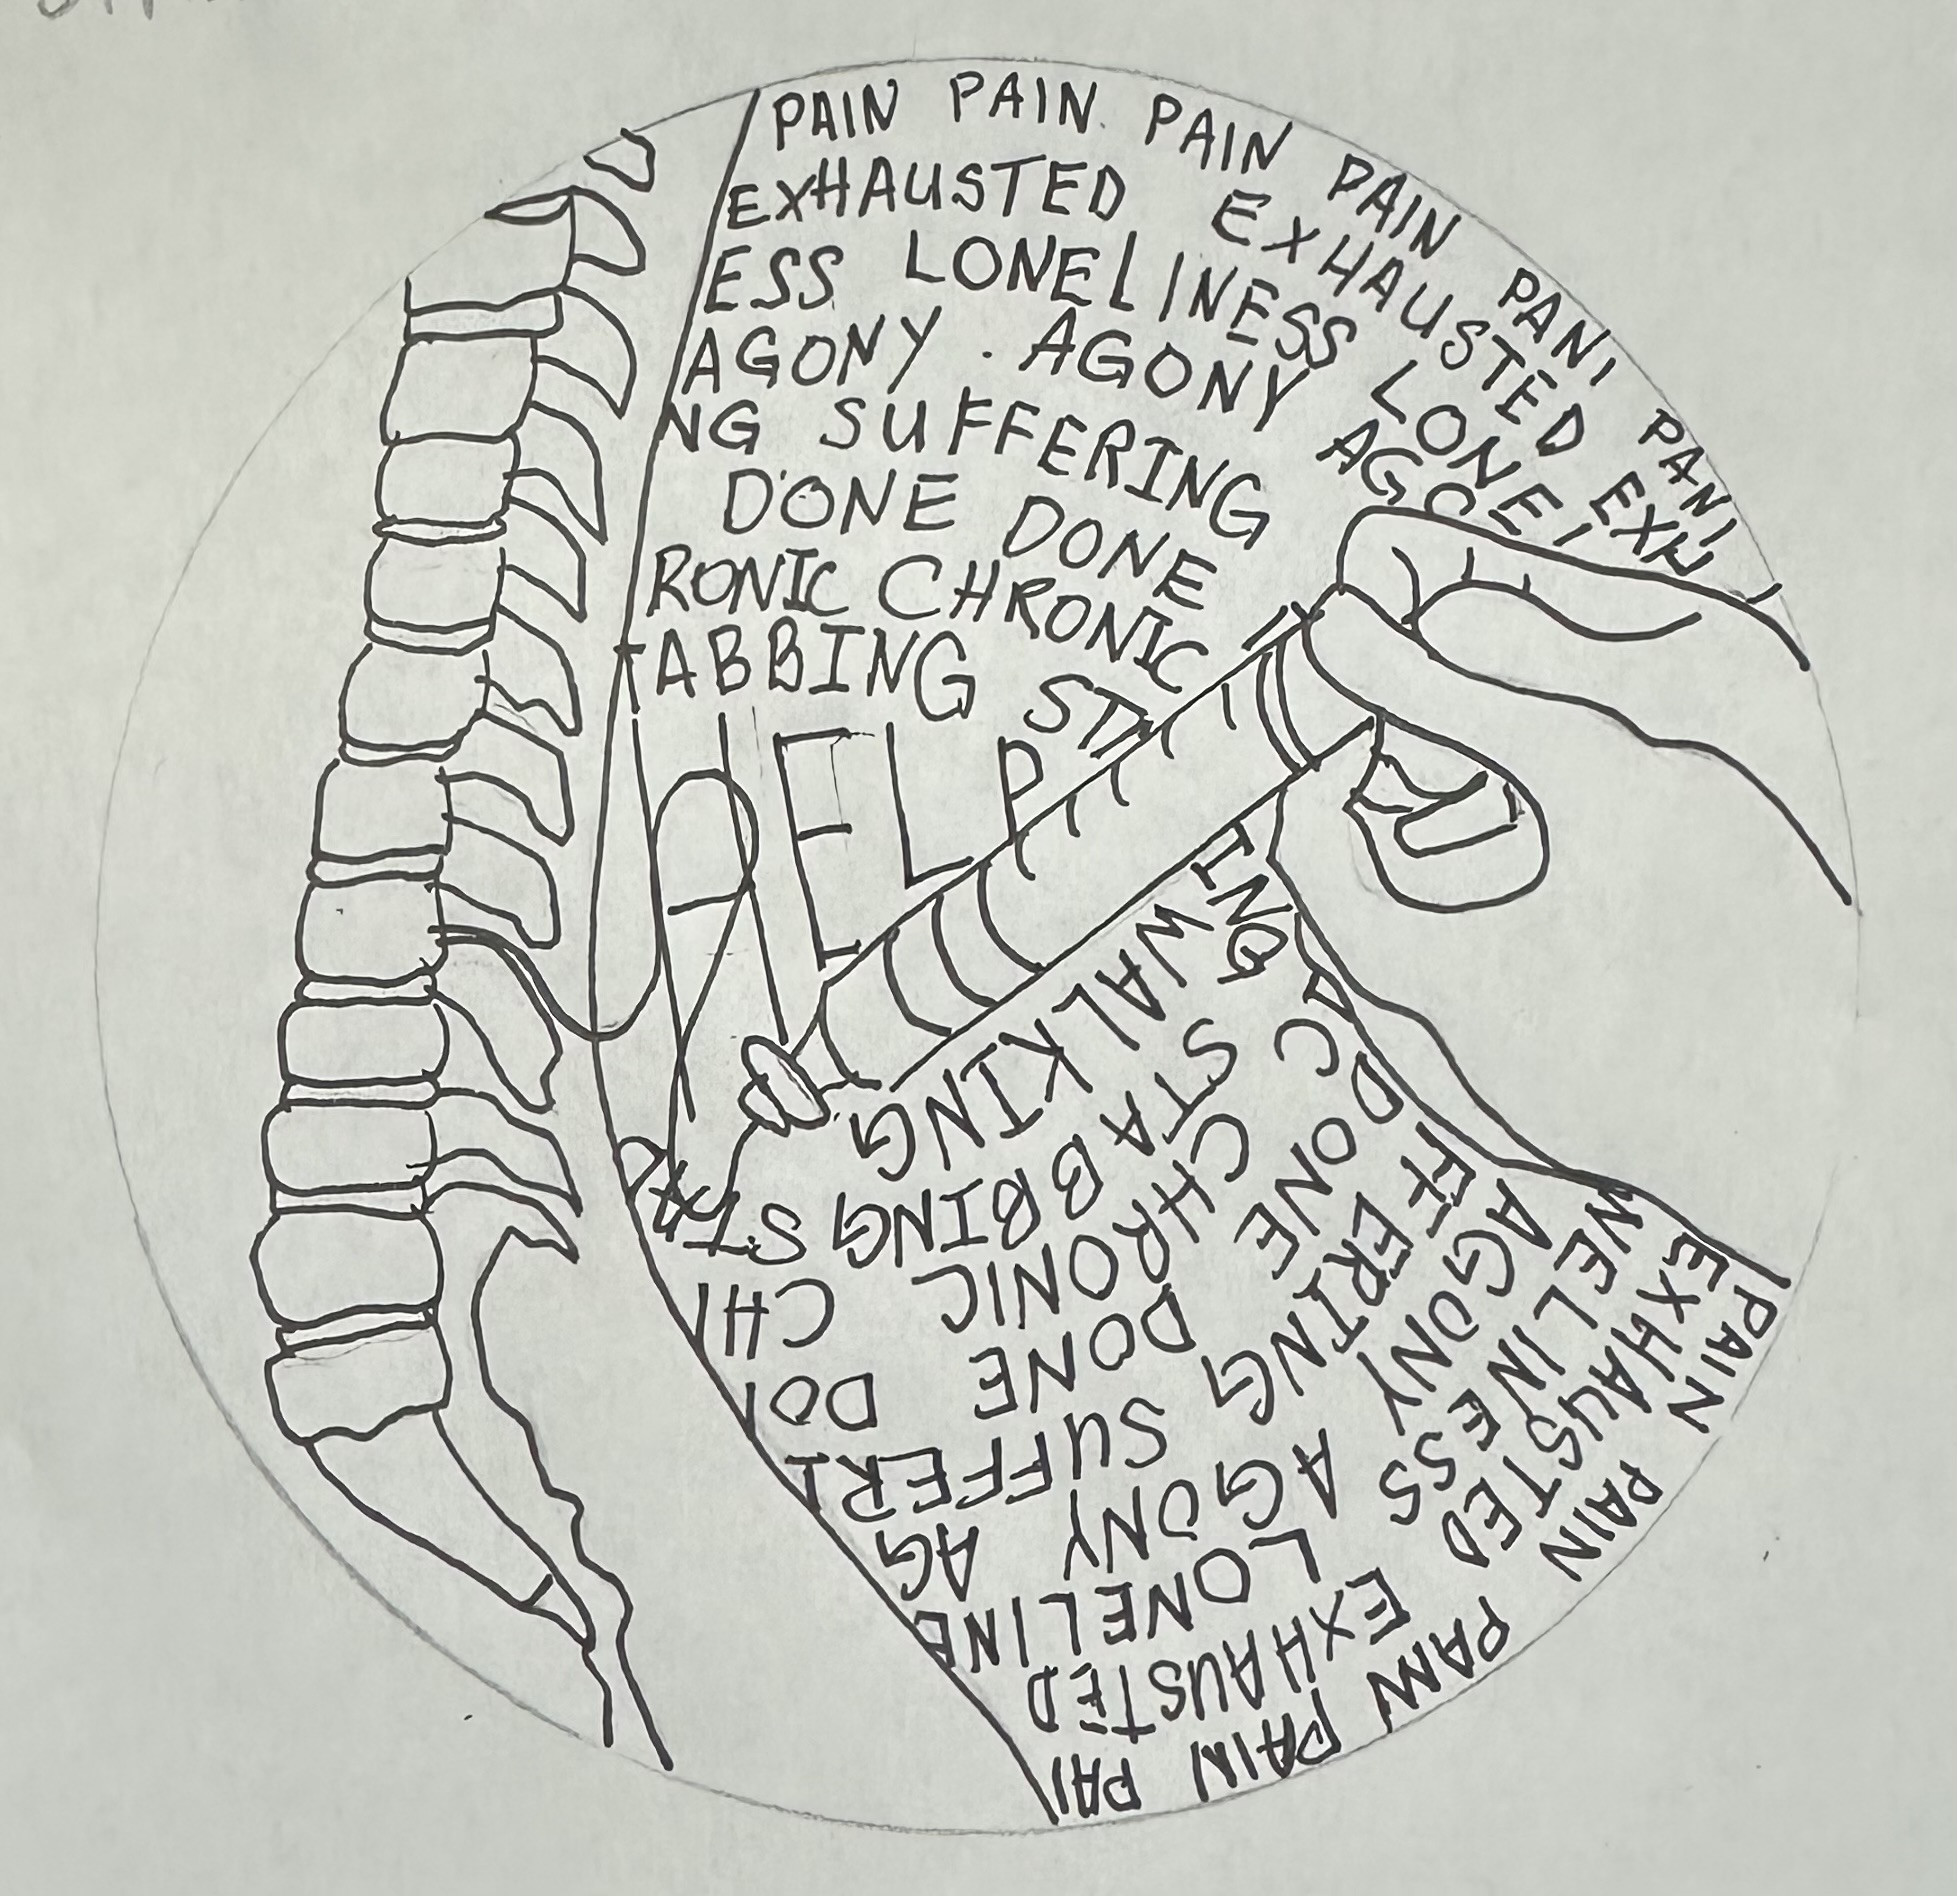 PAIN PAIN PAIN PAIN PANI PANI
EXHAUSTED EXHAUSTED EXH
ESS LONELINESS LONEI
AGONY AGONY AGO
NG SUFFERING
DONE DONE
RONIC CHRONIC
TABBING STA
HELP
ING WALKING
C STABBING ST
DONE CHRONIC CHI
FFERING DONE DOI
AGONY SUFFERI
NELINESS AGONY AG
EXHAUSTED LONELINE
PAIN EXHAUSTED
PAIN PAIN PAIN PAI